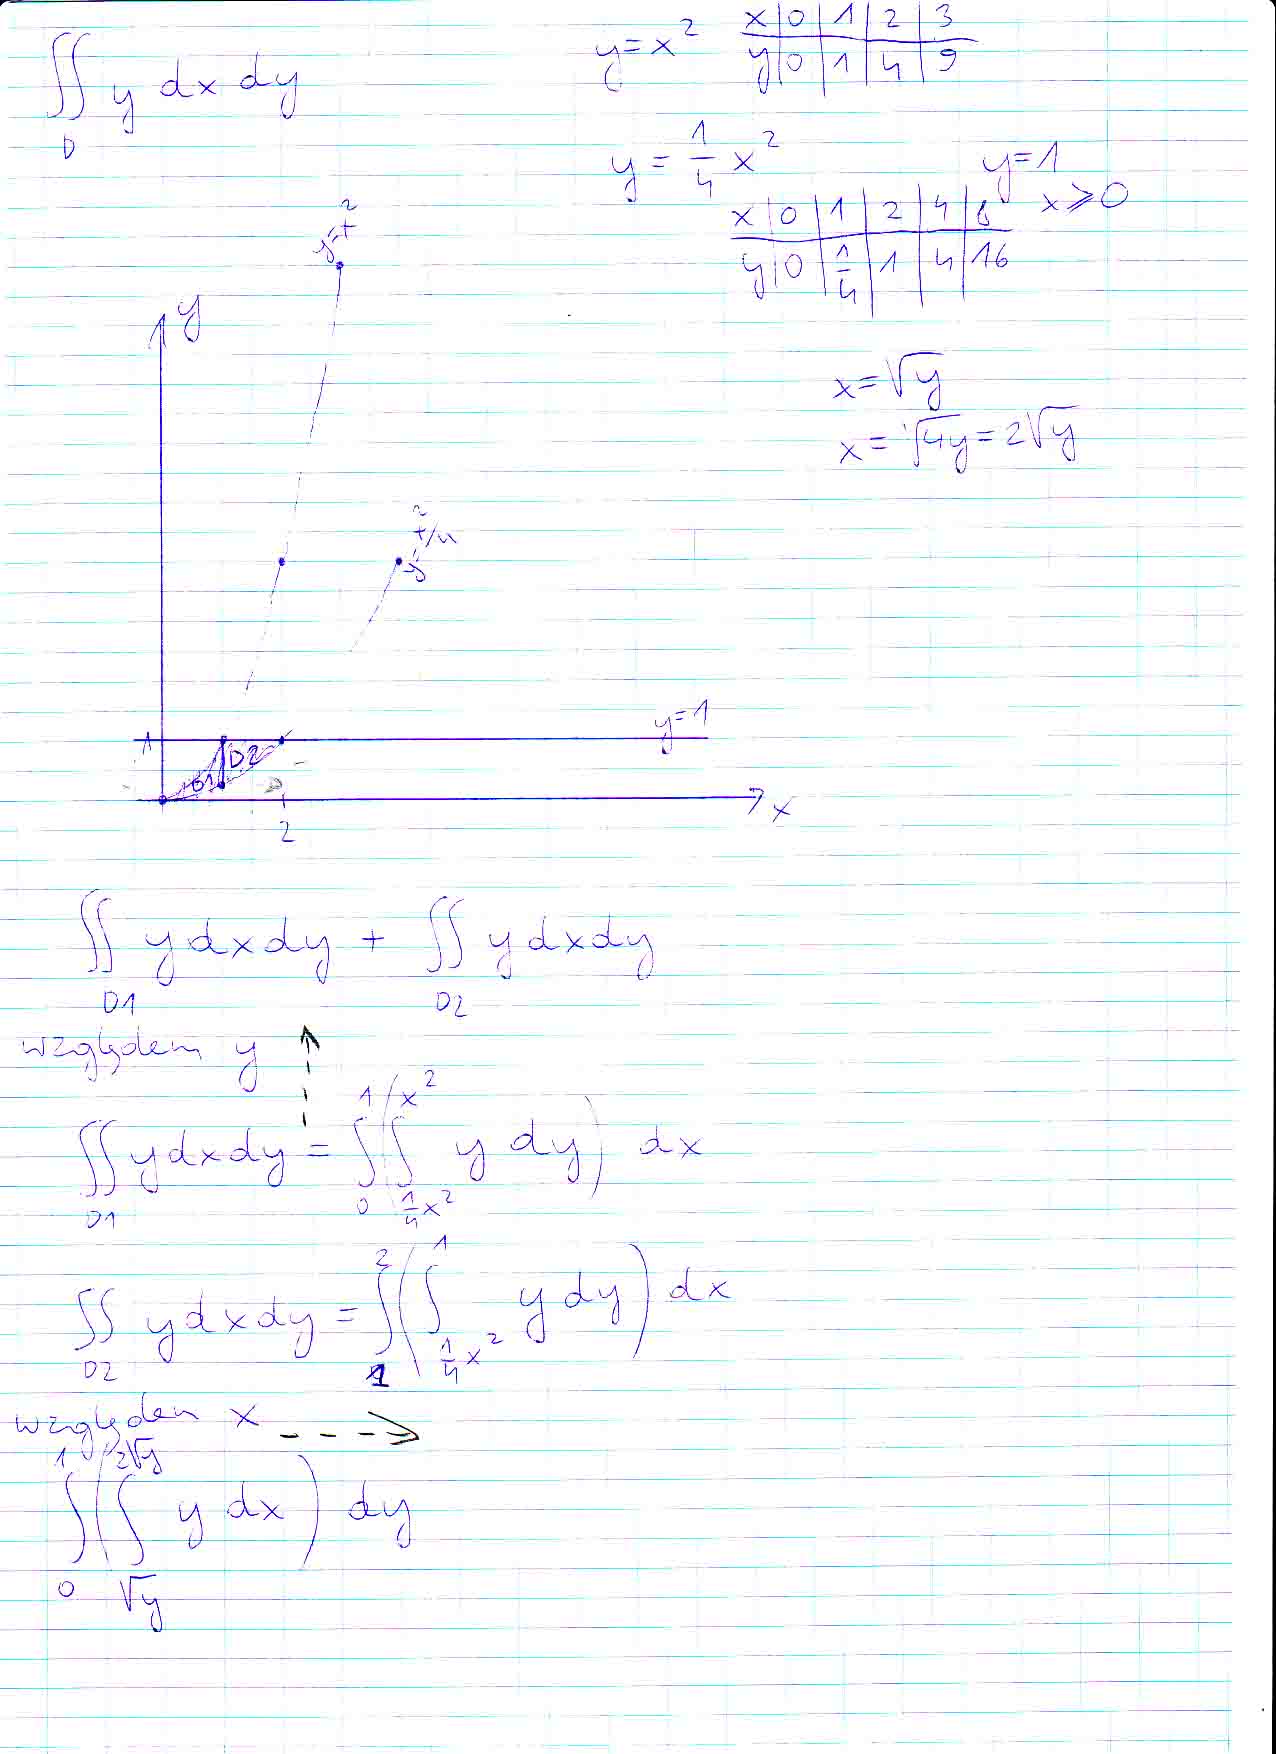 ∬ y dx dy
D
y = x²
x | 0 | 1 | 2 | 3
y | 0 | 1 | 4 | 9
y = 1/4 x²
y = 1
x ⩾ 0
x | 0 | 1 | 2 | 4 | 8
y | 0 | 1/4 | 1 | 4 | 16
x = √y
x = √4y = 2√y
y=x²
y
y=x²/4
y=1
1
D1 D2
2
x
∬ y dx dy + ∬ y dx dy
D1 D2
względem y
∬_D1 y dx dy = ∫_0^1 ( ∫_{1/4 x²}^{x²} y dy ) dx
∬_D2 y dx dy = ∫_1^2 ( ∫_{1/4 x²}^1 y dy ) dx
względem x
∫_0^1 ( ∫_{√y}^{2√y} y dx ) dy